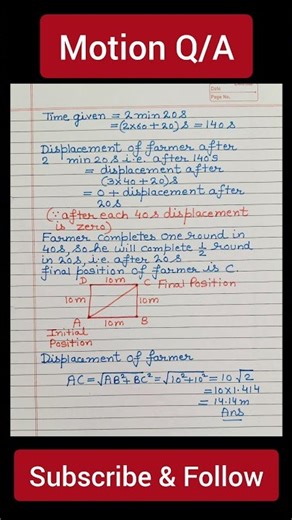 Motion Q/A
Date
Page No.
Time given = 2 min 20s
= (2x60 + 20) s = 140s
Displacement of farmer after
2 min 20s i.e. after 140s
= displacement after
(3x40 + 20)s
= 0 + displacement after
20s
(∵ after each 40s displacement
is zero)
Farmer completes one round in
40s, so he will complete 1/2 round
in 20s, i.e. after 20s
final position of farmer is C.
D 10m C Final Position
10m 10m
A 10m B
Initial
Position
Displacement of farmer
AC = √AB²+BC² = √10²+10² = 10√2
= 10x1.414
= 14.14m
Ans
Subscribe & Follow